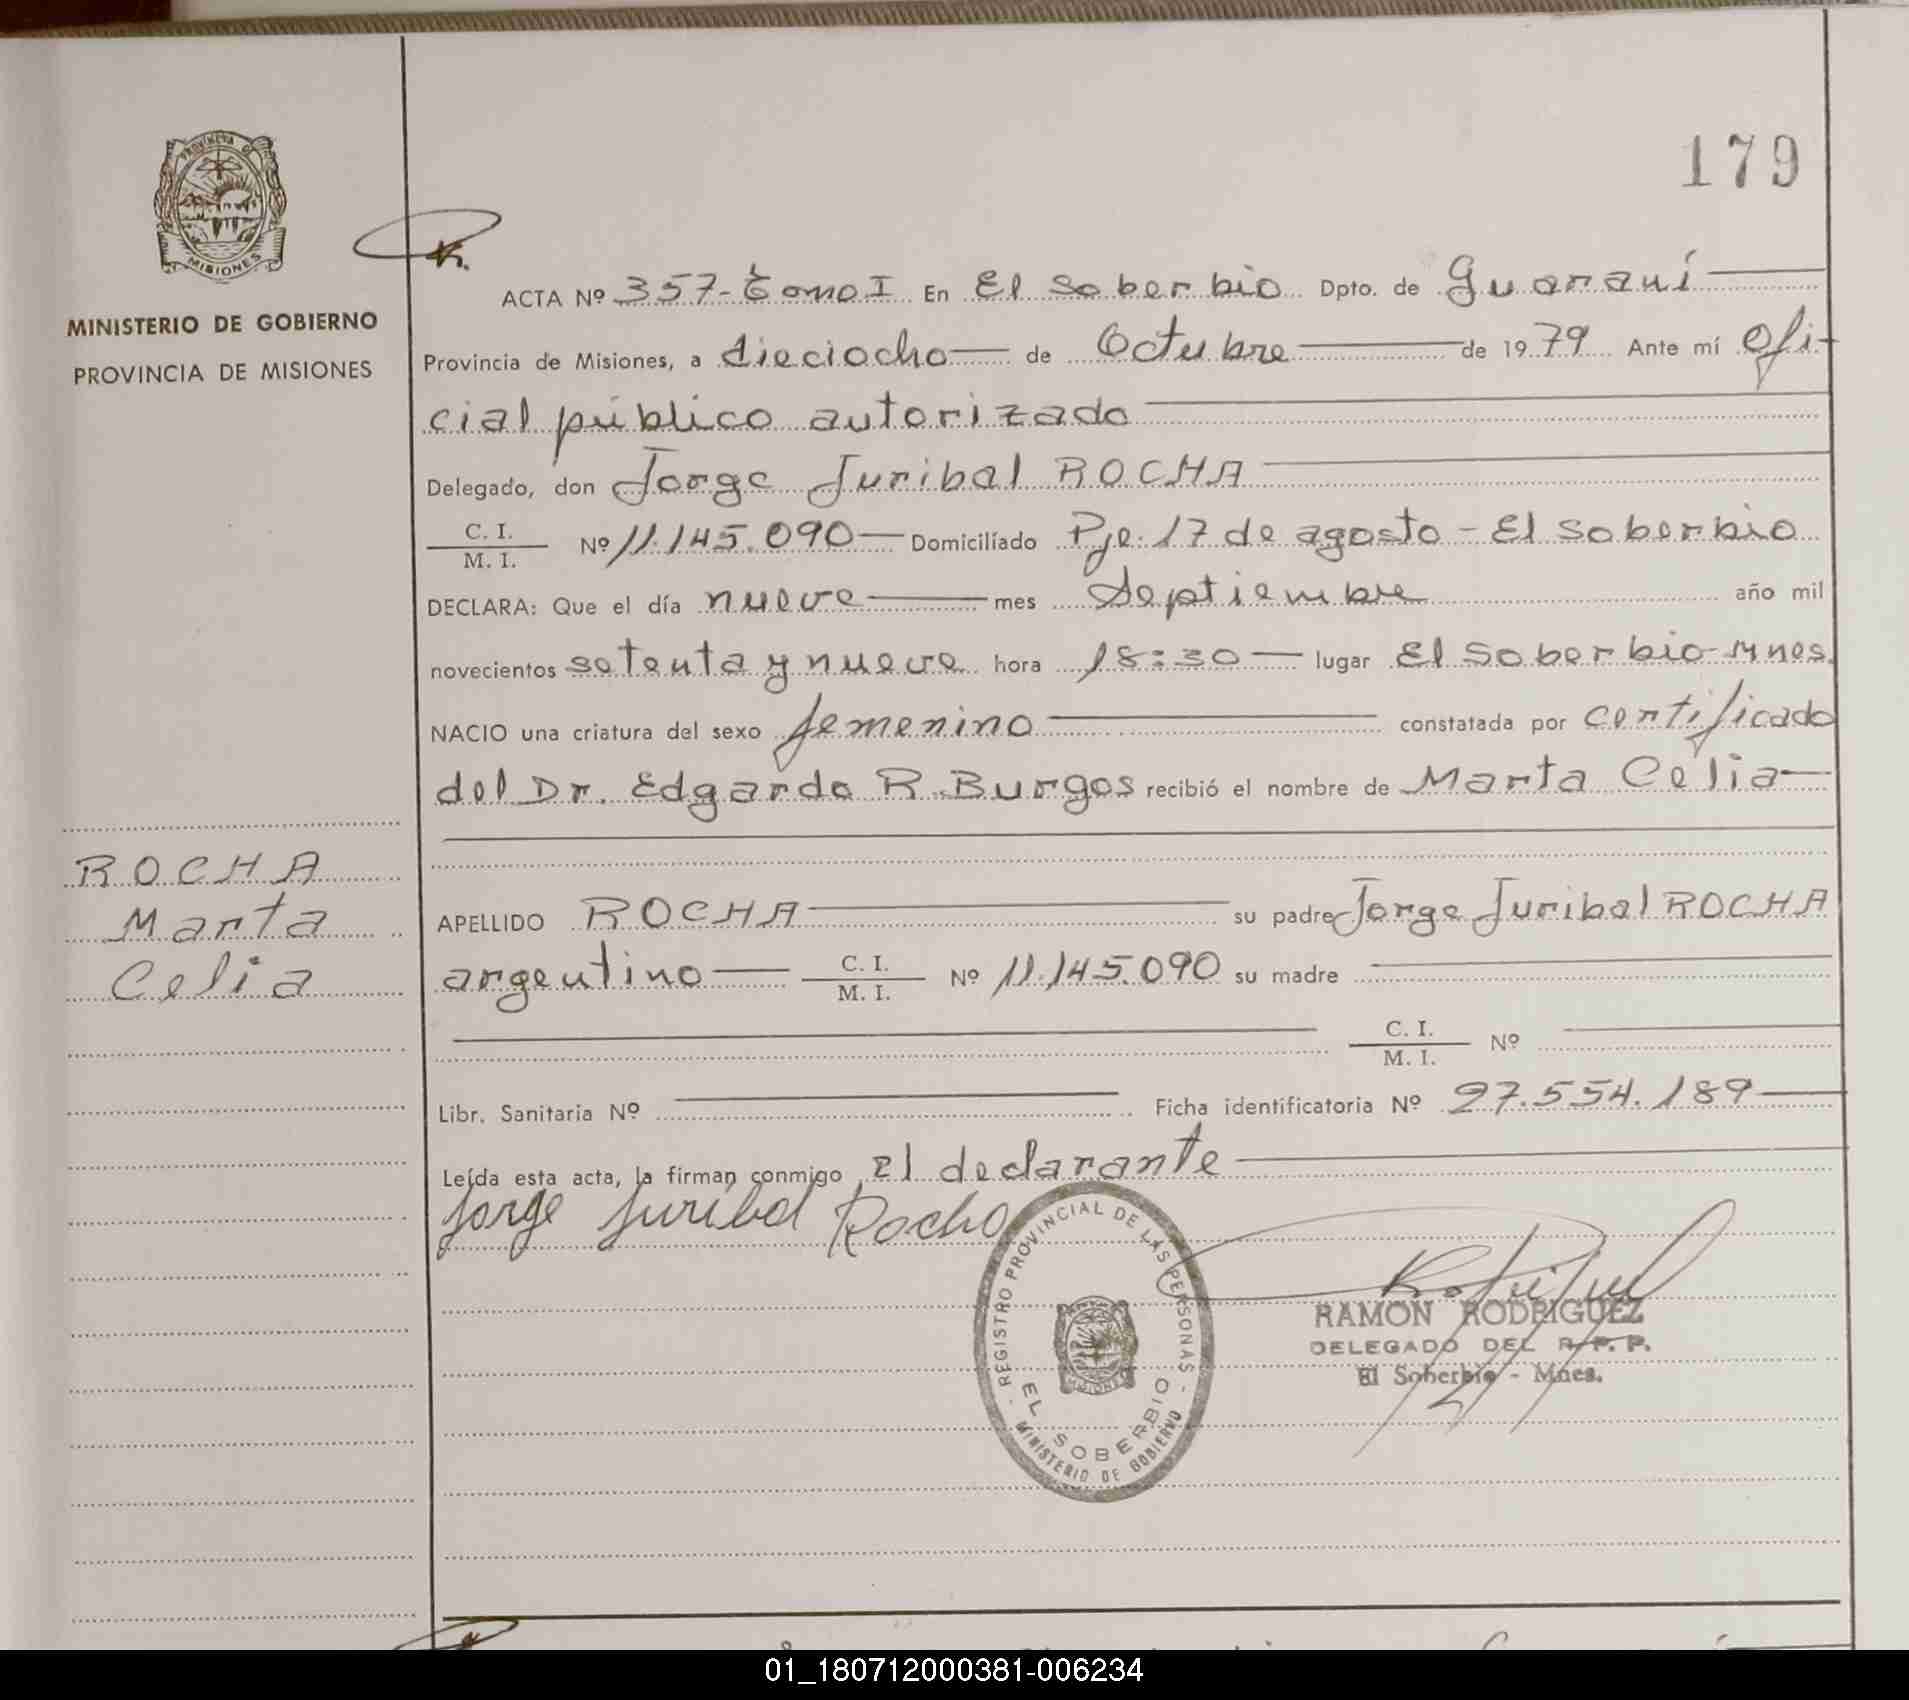 179
PROVINCIA DE
MISIONES
MINISTERIO DE GOBIERNO
PROVINCIA DE MISIONES
ACTA Nº 357-Tomo I En El Soberbio Dpto. de Guaraní
Provincia de Misiones, a dieciocho de Octubre de 1979 Ante mí Ofi-
cial público autorizado
Delegado, don Jorge Juribal ROCHA
C. I.
M. I. Nº 11.145.090 Domiciliado Pje. 17 de agosto - El Soberbio
DECLARA: Que el día nueve mes Septiembre año mil
novecientos setenta y nueve hora 18:30 lugar El Soberbio-Mnes.
NACIO una criatura del sexo femenino constatada por certificado
del Dr. Edgardo R. Burgos recibió el nombre de Marta Celia
ROCHA
Marta
Celia
APELLIDO ROCHA su padre Jorge Juribal ROCHA
argentino C. I.
M. I. Nº 11.145.090 su madre
C. I.
M. I. Nº
Libr. Sanitaria Nº Ficha identificatoria Nº 27.554.189
Leída esta acta, la firman conmigo el declarante
Jorge Juribal Rocha
REGISTRO PROVINCIAL DE LAS PERSONAS
MISIONES
EL SOBERBIO
MINISTERIO DE GOBIERNO
RAMON RODRIGUEZ
DELEGADO DEL R. P. P.
El Soberbio - Mnes.
01_180712000381-006234